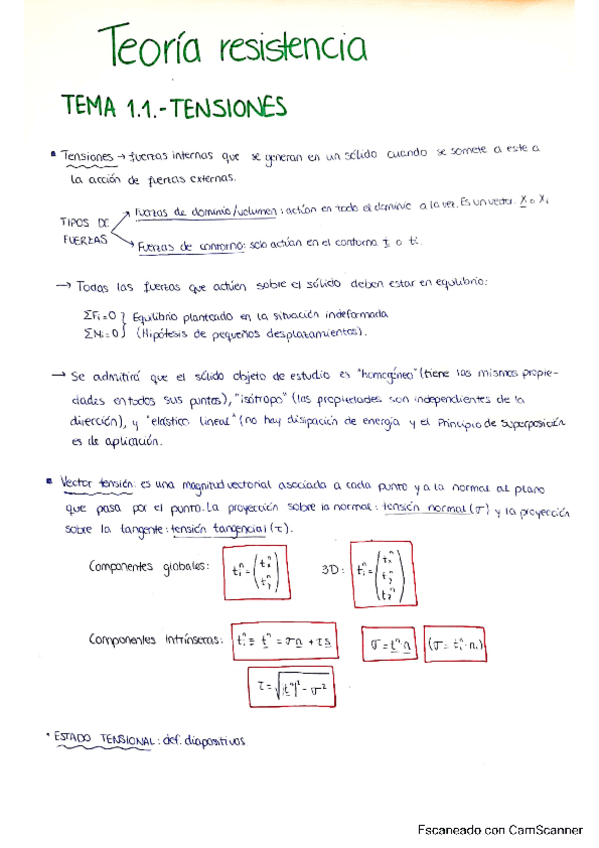 Teoría resistencia
TEMA 1.1.-TENSIONES
Tensiones → fuerzas internas que se generan en un sólido cuando se somete a este a
la acción de fuerzas externas.
TIPOS DE FUERZAS
Fuerzas de dominio/volumen: actúan en todo el dominio a la vez. Es un vector. X o Xi
Fuerzas de contorno: solo actúan en el contorno t o ti.
→ Todas las fuerzas que actúen sobre el sólido deben estar en equilibrio:
ΣFi=0 } Equilibrio planteado en la situación indeformada
ΣNi=0 } (Hipótesis de pequeños desplazamientos).
→ Se admitirá que el sólido objeto de estudio es "homogéneo" (tiene las mismas propie-
dades en todos sus puntos), "isótropo" (las propiedades son independientes de la
dirección), y "elástico lineal" (no hay disipación de energía y el Principio de Superposición
es de aplicación.
Vector tensión: es una magnitud vectorial asociada a cada punto y a la normal al plano
que pasa por el punto. La proyección sobre la normal: tensión normal (σ) y la proyección
sobre la tangente: tensión tangencial (τ).
Componentes globales: tᵢⁿ = (tₓⁿ tᵧⁿ) 3D: tᵢⁿ = (tₓⁿ tᵧⁿ t_zⁿ)
Componentes intrínsecas: tᵢⁿ ≡ tⁿ = σn + τs σ = tⁿ·n (σ = tᵢⁿ·nᵢ)
τ = √|tⁿ|² - σ²
ESTADO TENSIONAL: def. diapositivas
Escaneado con CamScanner